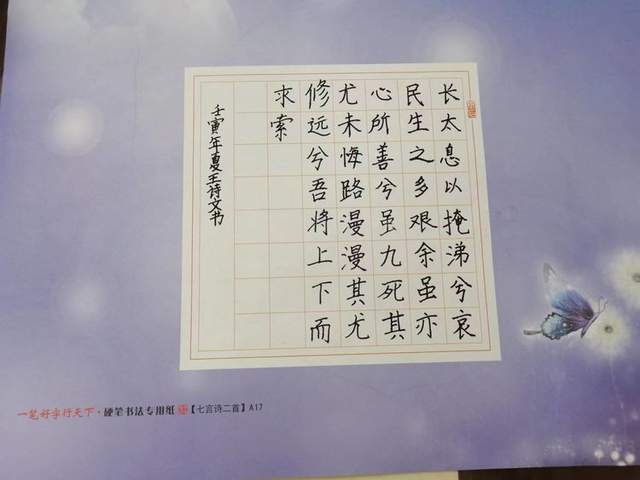 长太息以掩涕兮哀
民生之多艰余虽亦
心所善兮虽九死其
尤未悔路漫漫其尤
修远兮吾将上下而
求索
壬寅年夏王诗文书
一笔好字行天下·硬笔书法专用纸【七言诗二首】A17